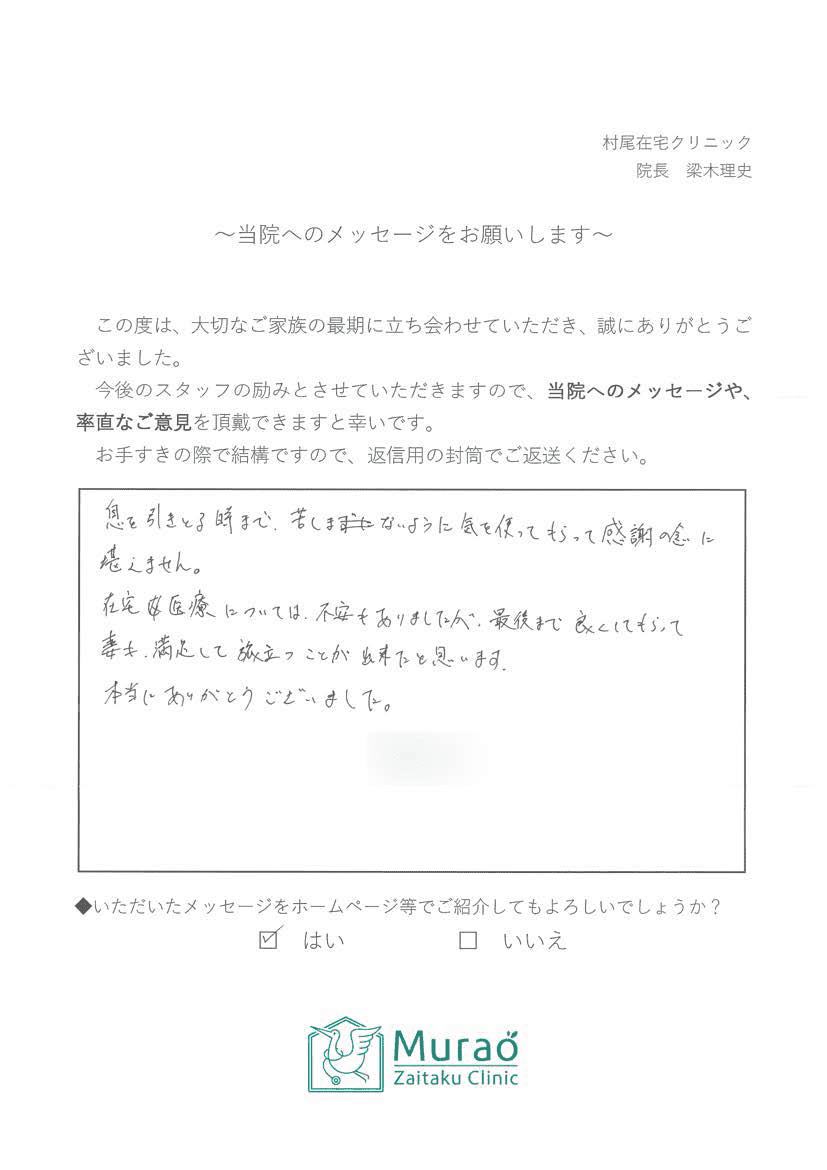 村尾在宅クリニック
院長　梁木理史
～当院へのメッセージをお願いします～
この度は、大切なご家族の最期に立ち会わせていただき、誠にありがとうご
ざいました。
今後のスタッフの励みとさせていただきますので、当院へのメッセージや、
率直なご意見を頂戴できますと幸いです。
お手すきの際で結構ですので、返信用の封筒でご返送ください。
息を引きとる時まで、苦しまないように気を使ってもらって感謝の念に
堪えません。
在宅医療については、不安もありましたが、最後まで良くしてもらって
妻も、満足して旅立つことが出来たと思います。
本当にありがとうございました。
◆いただいたメッセージをホームページ等でご紹介してもよろしいでしょうか？
☑ はい　□ いいえ
Murao
Zaitaku Clinic